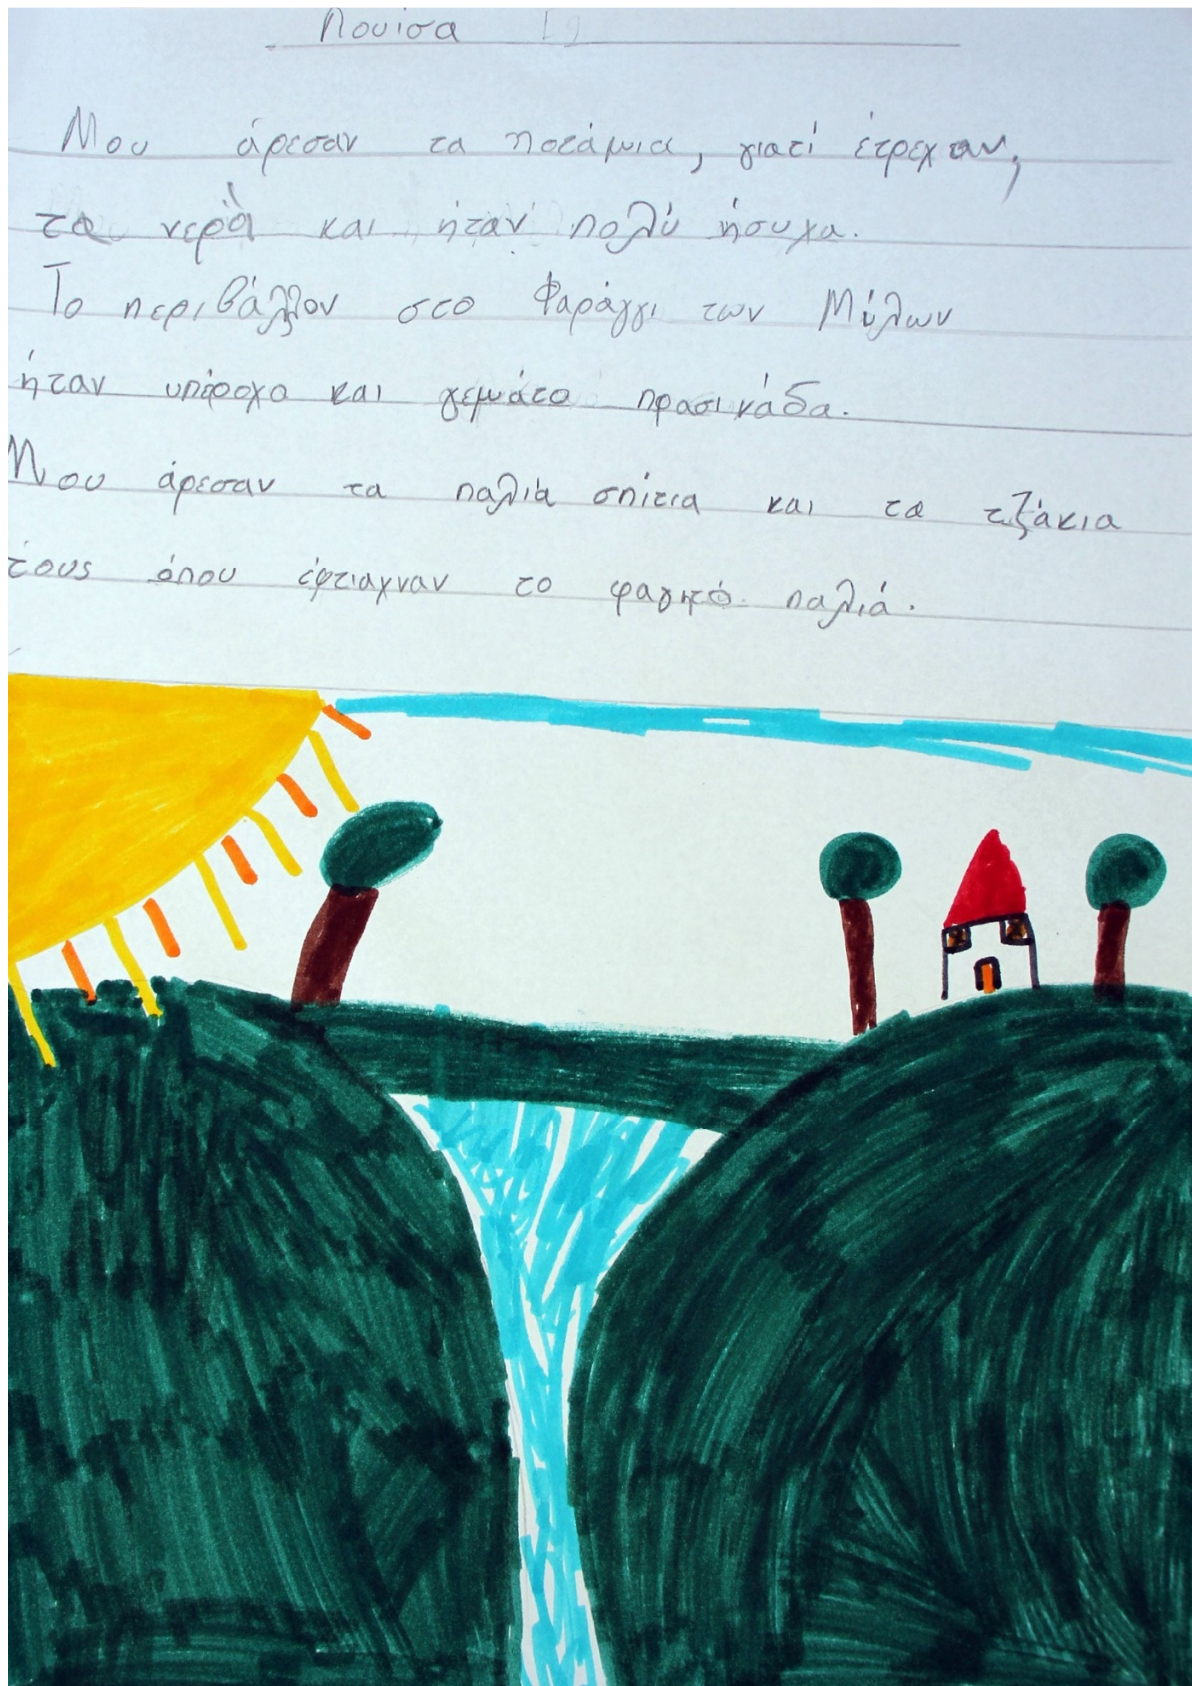 Λουίσα
Μου άρεσαν τα ποτάμια, γιατί έτρεχαν,
τα νερά και ήταν πολύ ήσυχα.
Το περιβάλλον στο Φαράγγι των Μύλων
ήταν υπέροχο και γεμάτο πρασινάδα.
Μου άρεσαν τα παλιά σπίτια και τα τζάκια
τους όπου έφτιαχναν το φαγητό παλιά.